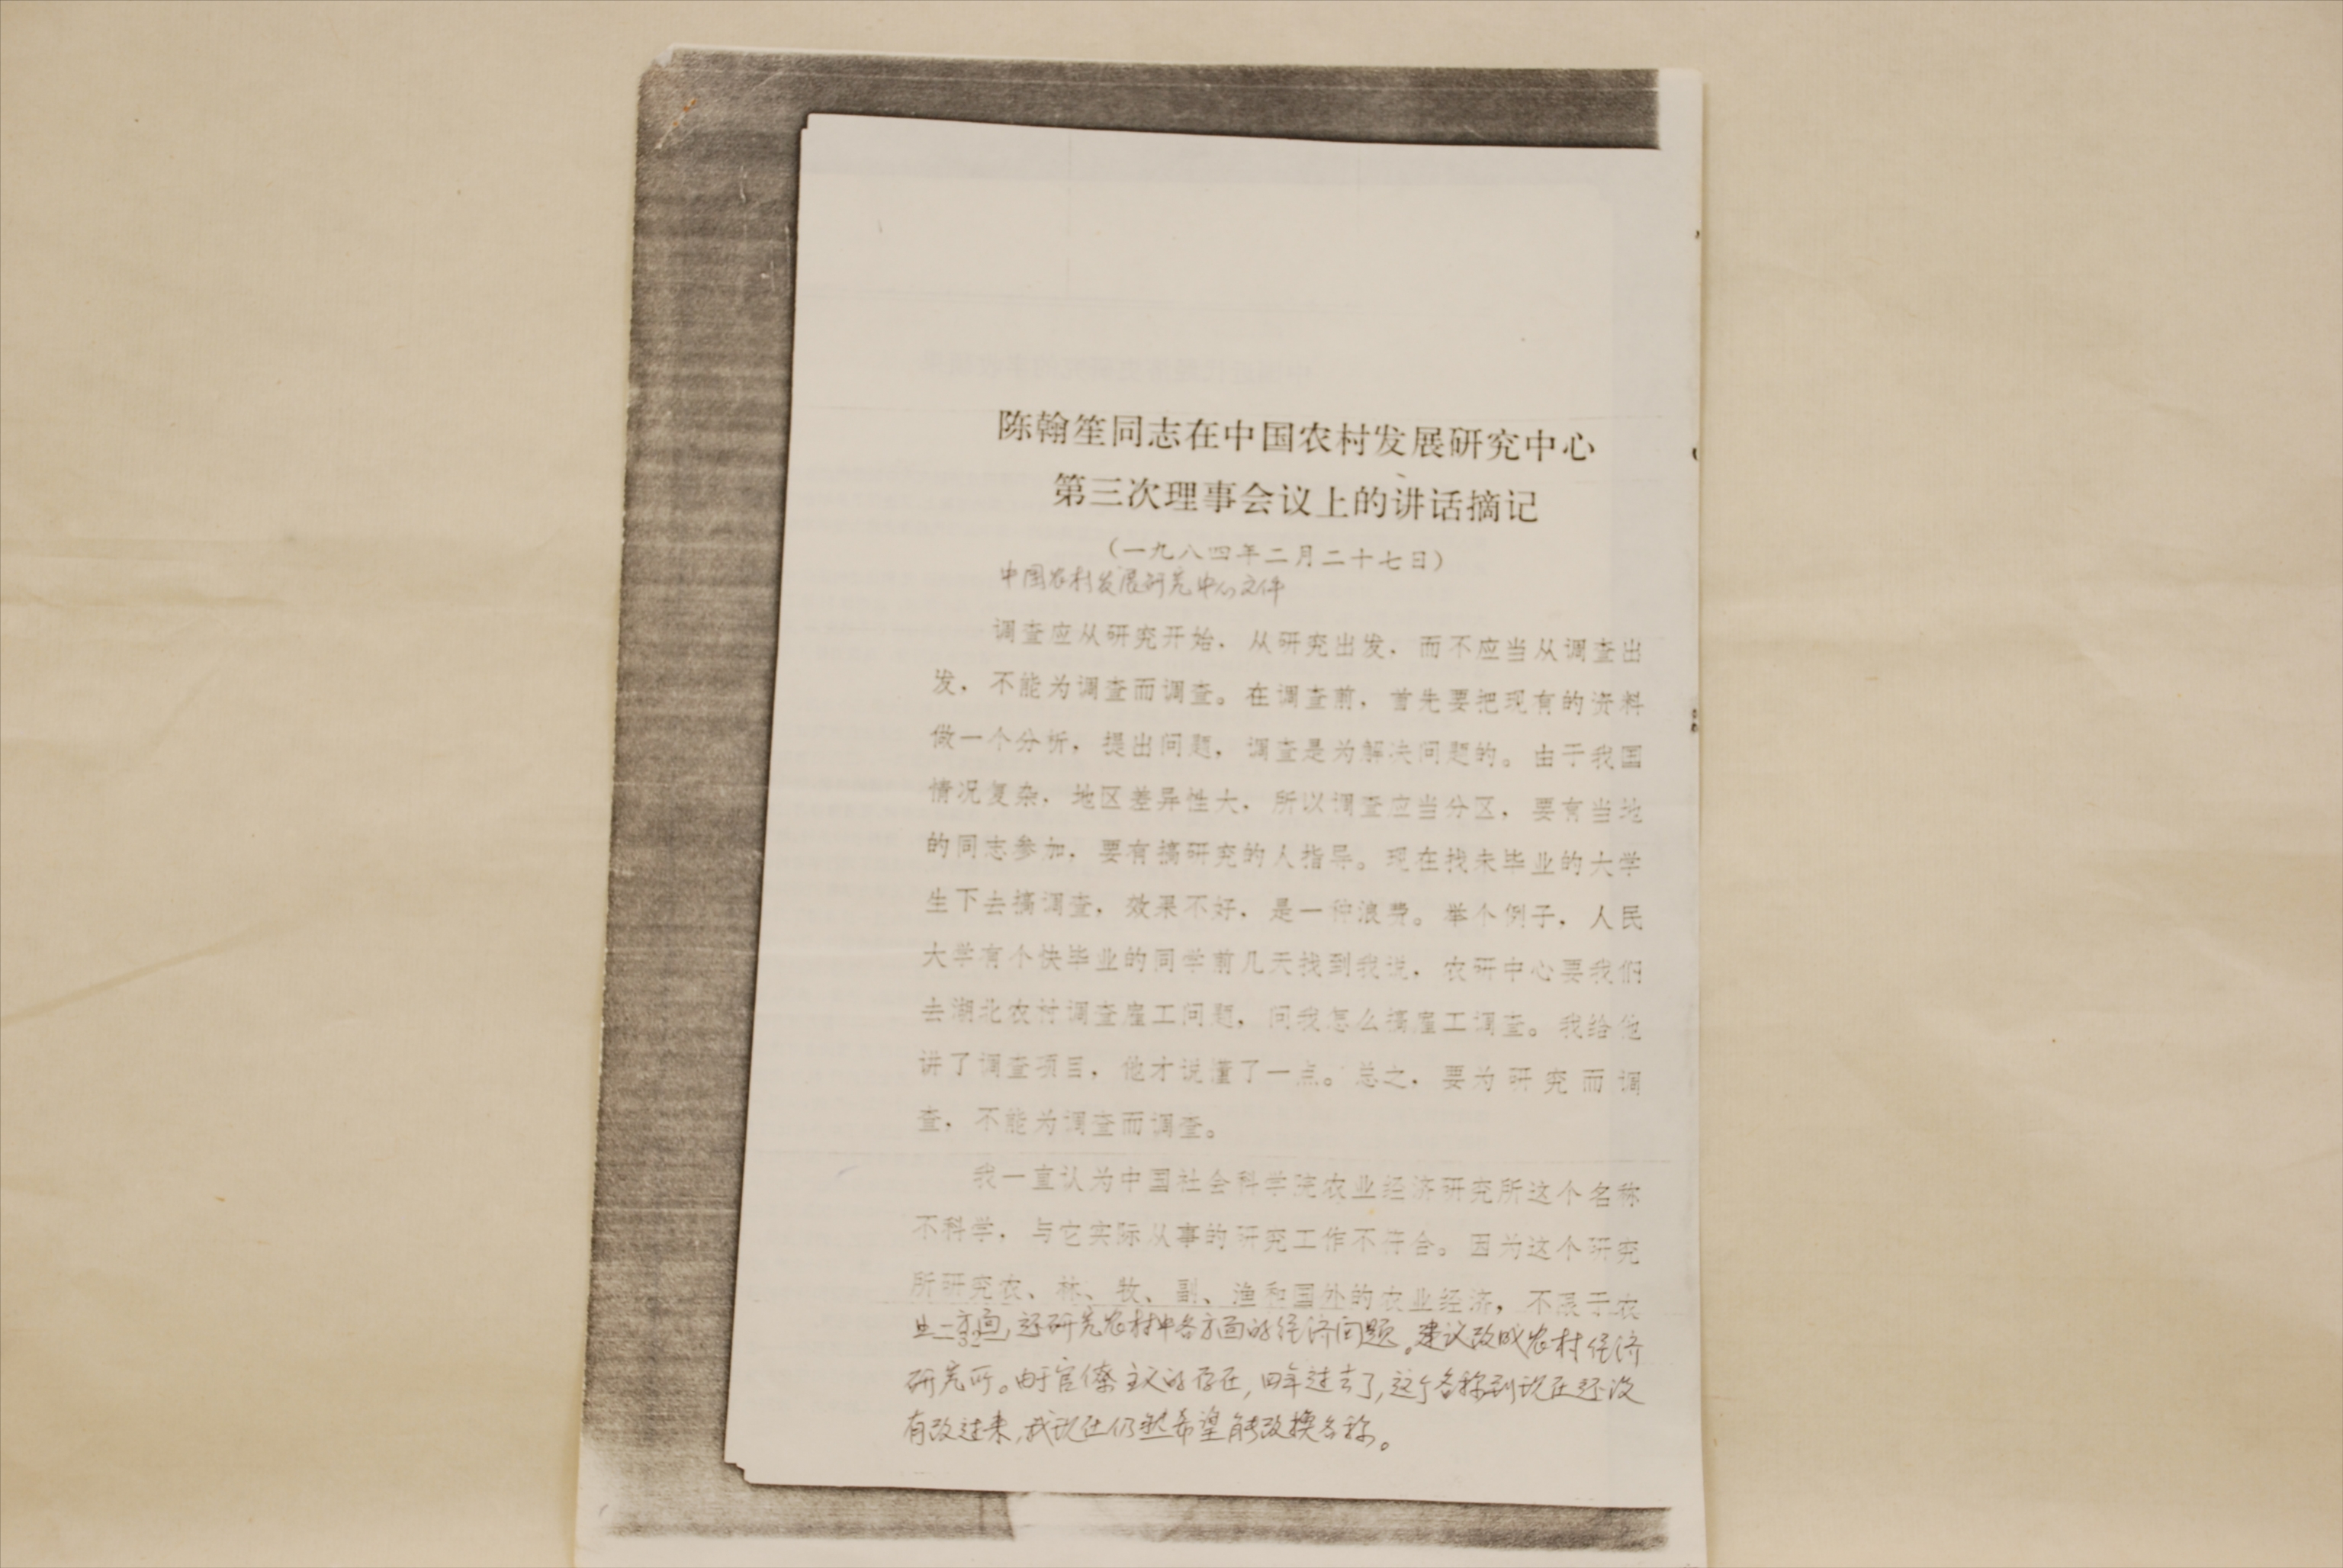 陈翰笙同志在中国农村发展研究中心
第三次理事会议上的讲话摘记
（一九八四年二月二十七日）
中国农村发展研究中心文件
调查应从研究开始，从研究出发，而不应当从调查出
发，不能为调查而调查。在调查前，首先要把现有的资料
做一个分析，提出问题，调查是为解决问题的。由于我国
情况复杂，地区差异性大，所以调查应当分区，要有当地
的同志参加，要有搞研究的人指导。现在找未毕业的大学
生下去搞调查，效果不好，是一种浪费。举个例子，人民
大学有个快毕业的同学前几天找到我说，农研中心要我们
去湖北农村调查雇工问题，问我怎么搞雇工调查。我给他
讲了调查项目，他才说懂了一点。总之，要为研究而调
查，不能为调查而调查。
我一直认为中国社会科学院农业经济研究所这个名称
不科学，与它实际从事的研究工作不符合。因为这个研究
所研究农、林、牧、副、渔和国外的农业经济，不限于农
业一方面，还研究农村中各方面的经济问题。建议改成农村经济
32
研究所。由于官僚主义的存在，四年过去了，这个名称到现在还没
有改过来，我现在仍然希望能改换名称。